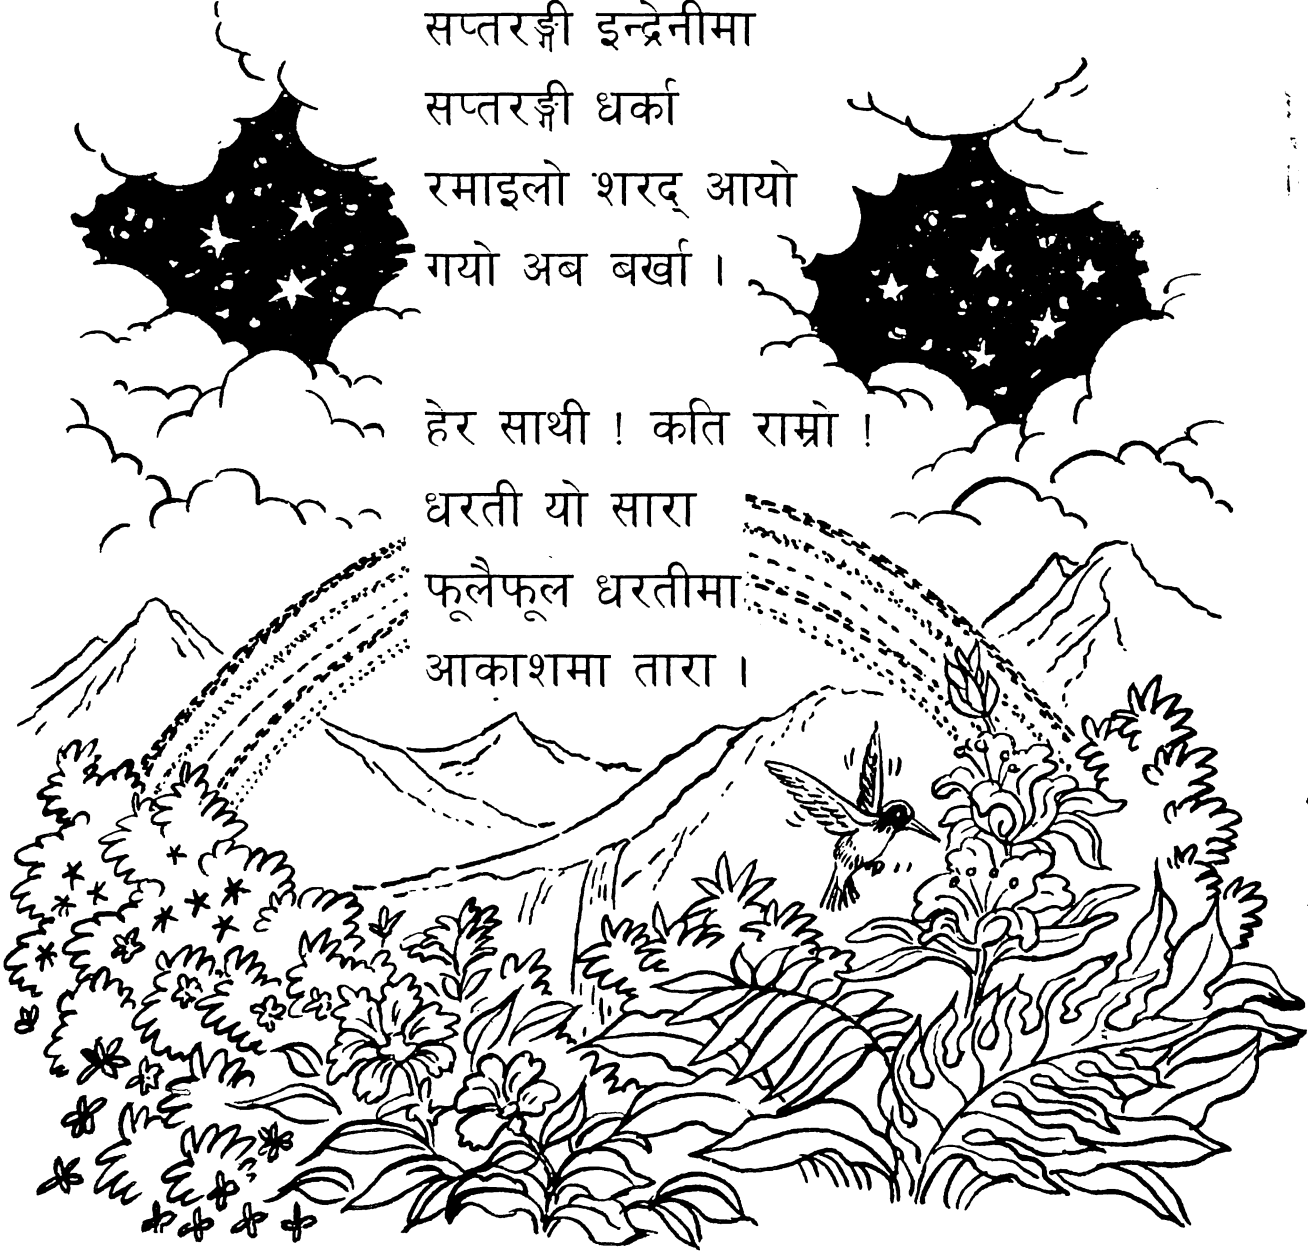 सप्तरङ्गी इन्द्रेनीमा
सप्तरङ्गी धर्का
रमाइलो शरद् आयो
गयो अब बर्खा ।
हेर साथी ! कति राम्रो !
धरती यो सारा
फूलैफूल धरतीमा
आकाशमा तारा ।